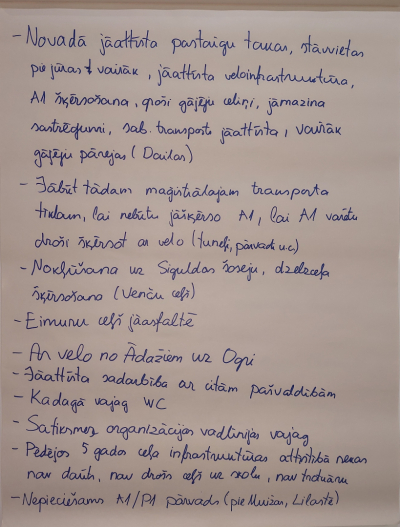 - Novadā jāattīsta pastaigu takas, stāvvietas
pie jūras + vairāk, jāattīsta veloinfrastruktūra,
A1 šķērsošana, droši gājēju celiņi, jāmazina
sastrēgumi, sab. transports jāattīsta, vairāk
gājēju pārejas (Dailas)
- Jābūt tādam maģistrālajam transporta
tīklam, lai nebūtu jāšķērso A1, lai A1 varētu
droši šķērsot ar velo (tuneļi, pārvadi u.c)
- Nokļūšana uz Siguldas šoseju, dzelzceļa
šķērsošana (Venču ceļš)
- Eimuru ceļš jāasfaltē
- Ar velo no Ādažiem uz Ogri
- Jāattīsta sadarbība ar citām pašvaldībām
- Kadagā vajag WC
- Satiksmes organizācijas vadlīnijas vajag
- Pēdējos 5 gados ceļa infrastruktūras attīstībā nekas
nav darīts, nav drošs ceļš uz skolu, nav trotuāru
- Nepieciešams A1/P1 pārvads (pie Muižas, Lilastē)